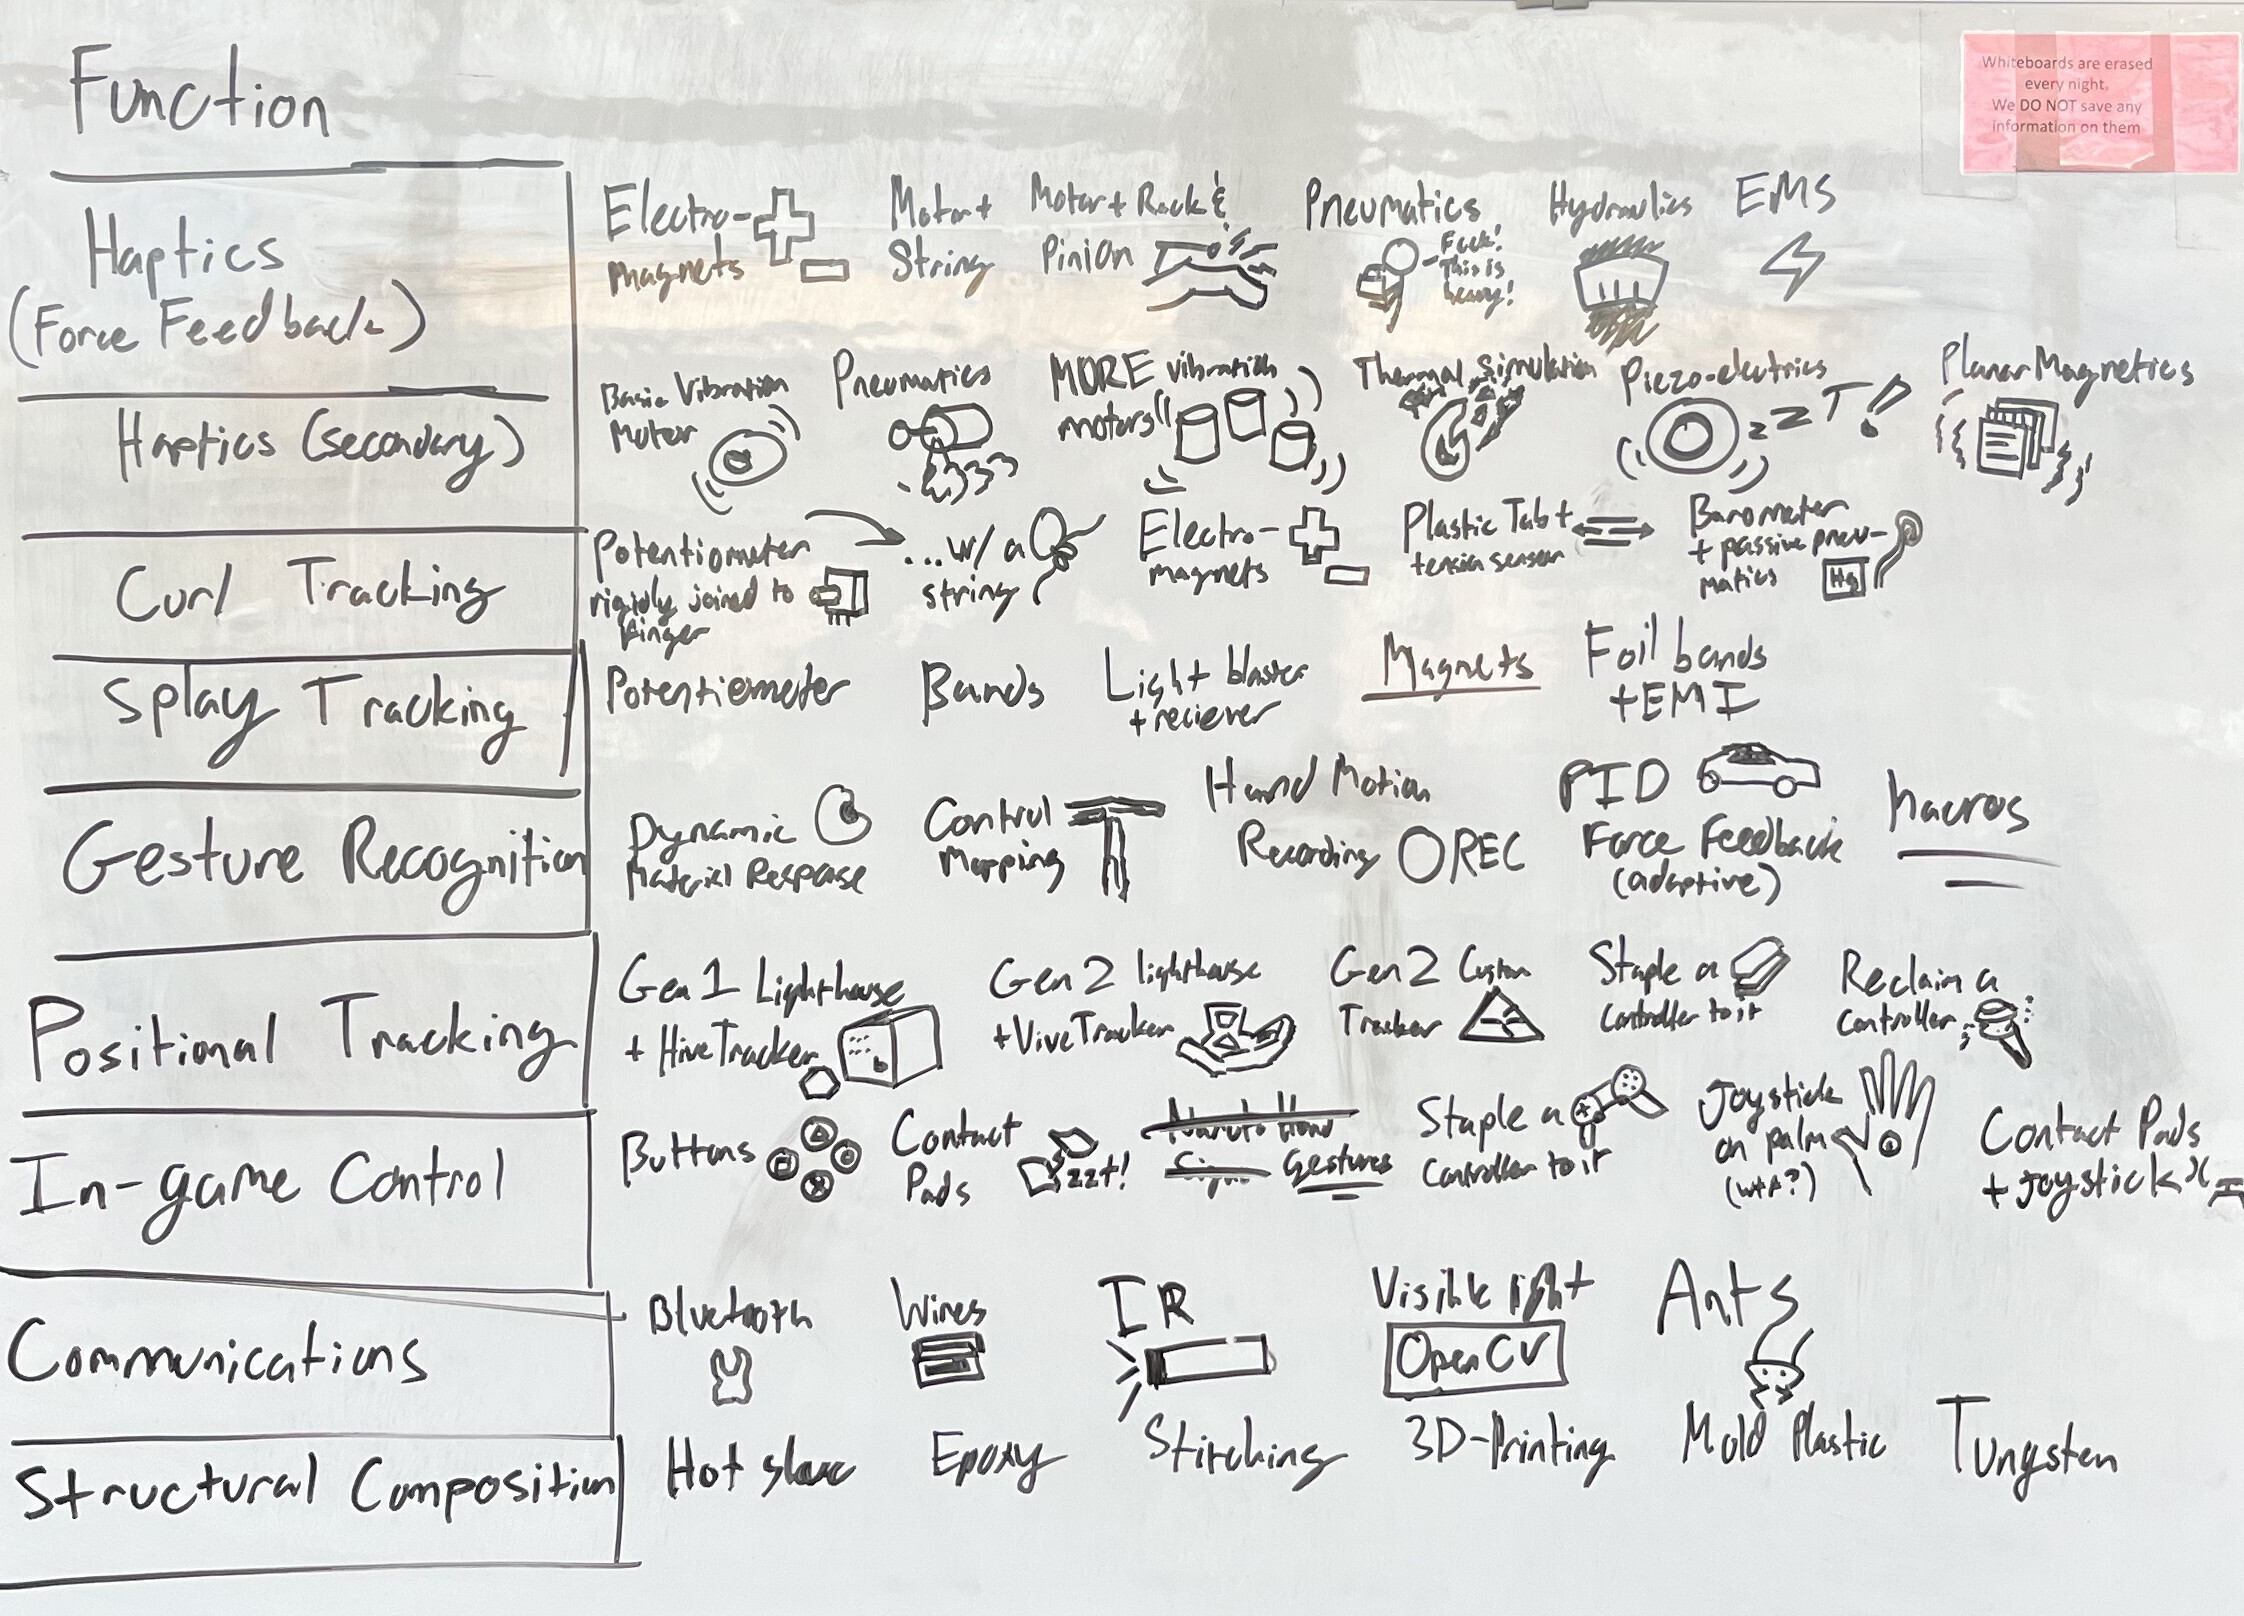 Whiteboards are erased
every night.
We DO NOT save any
information on them
Function
Haptics
(Force Feedback)
Electro-
magnets
Motor +
String
Motor + Rack &
Pinion
Pneumatics
Fuck!
This is
heavy!
Hydraulics
EMS
Haptics (secondary)
Basic Vibration
Motor
Pneumatics
MORE vibration
motors
Thermal Simulation
Piezo-electrics
zzT!
Planar Magnetics
Curl Tracking
Potentiometer
rigidly joined to
finger
...w/ a
string
Electro-
magnets
Plastic Tab +
tension sensor
Barometer
+ passive pneu-
matics
Hg
Splay Tracking
Potentiometer
Bands
Light blaster
+ reciever
Magnets
Foil bands
+ EMI
Gesture Recognition
Dynamic
Material Response
Control
Mapping
Hand Motion
Recording
REC
PID
Force Feedback
(adaptive)
Macros
Positional Tracking
Gen 1 Lighthouse
+ HiveTracker
Gen 2 lighthouse
+ ViveTracker
Gen 2 Custom
Tracker
Staple a
Controller to it
Reclaim a
Controller
In-game Control
Buttons
Contact
Pads
zzzt!
Naruto Hand
Signs Gestures
Staple a
Controller to it
Joystick
on palm
(wtf?)
Contact Pads
+ Joystick
Communications
Bluetooth
Wires
IR
Visible light
OpenCV
Ants
Structural Composition
Hot glue
Epoxy
Stitching
3D-Printing
Mold Plastic
Tungsten